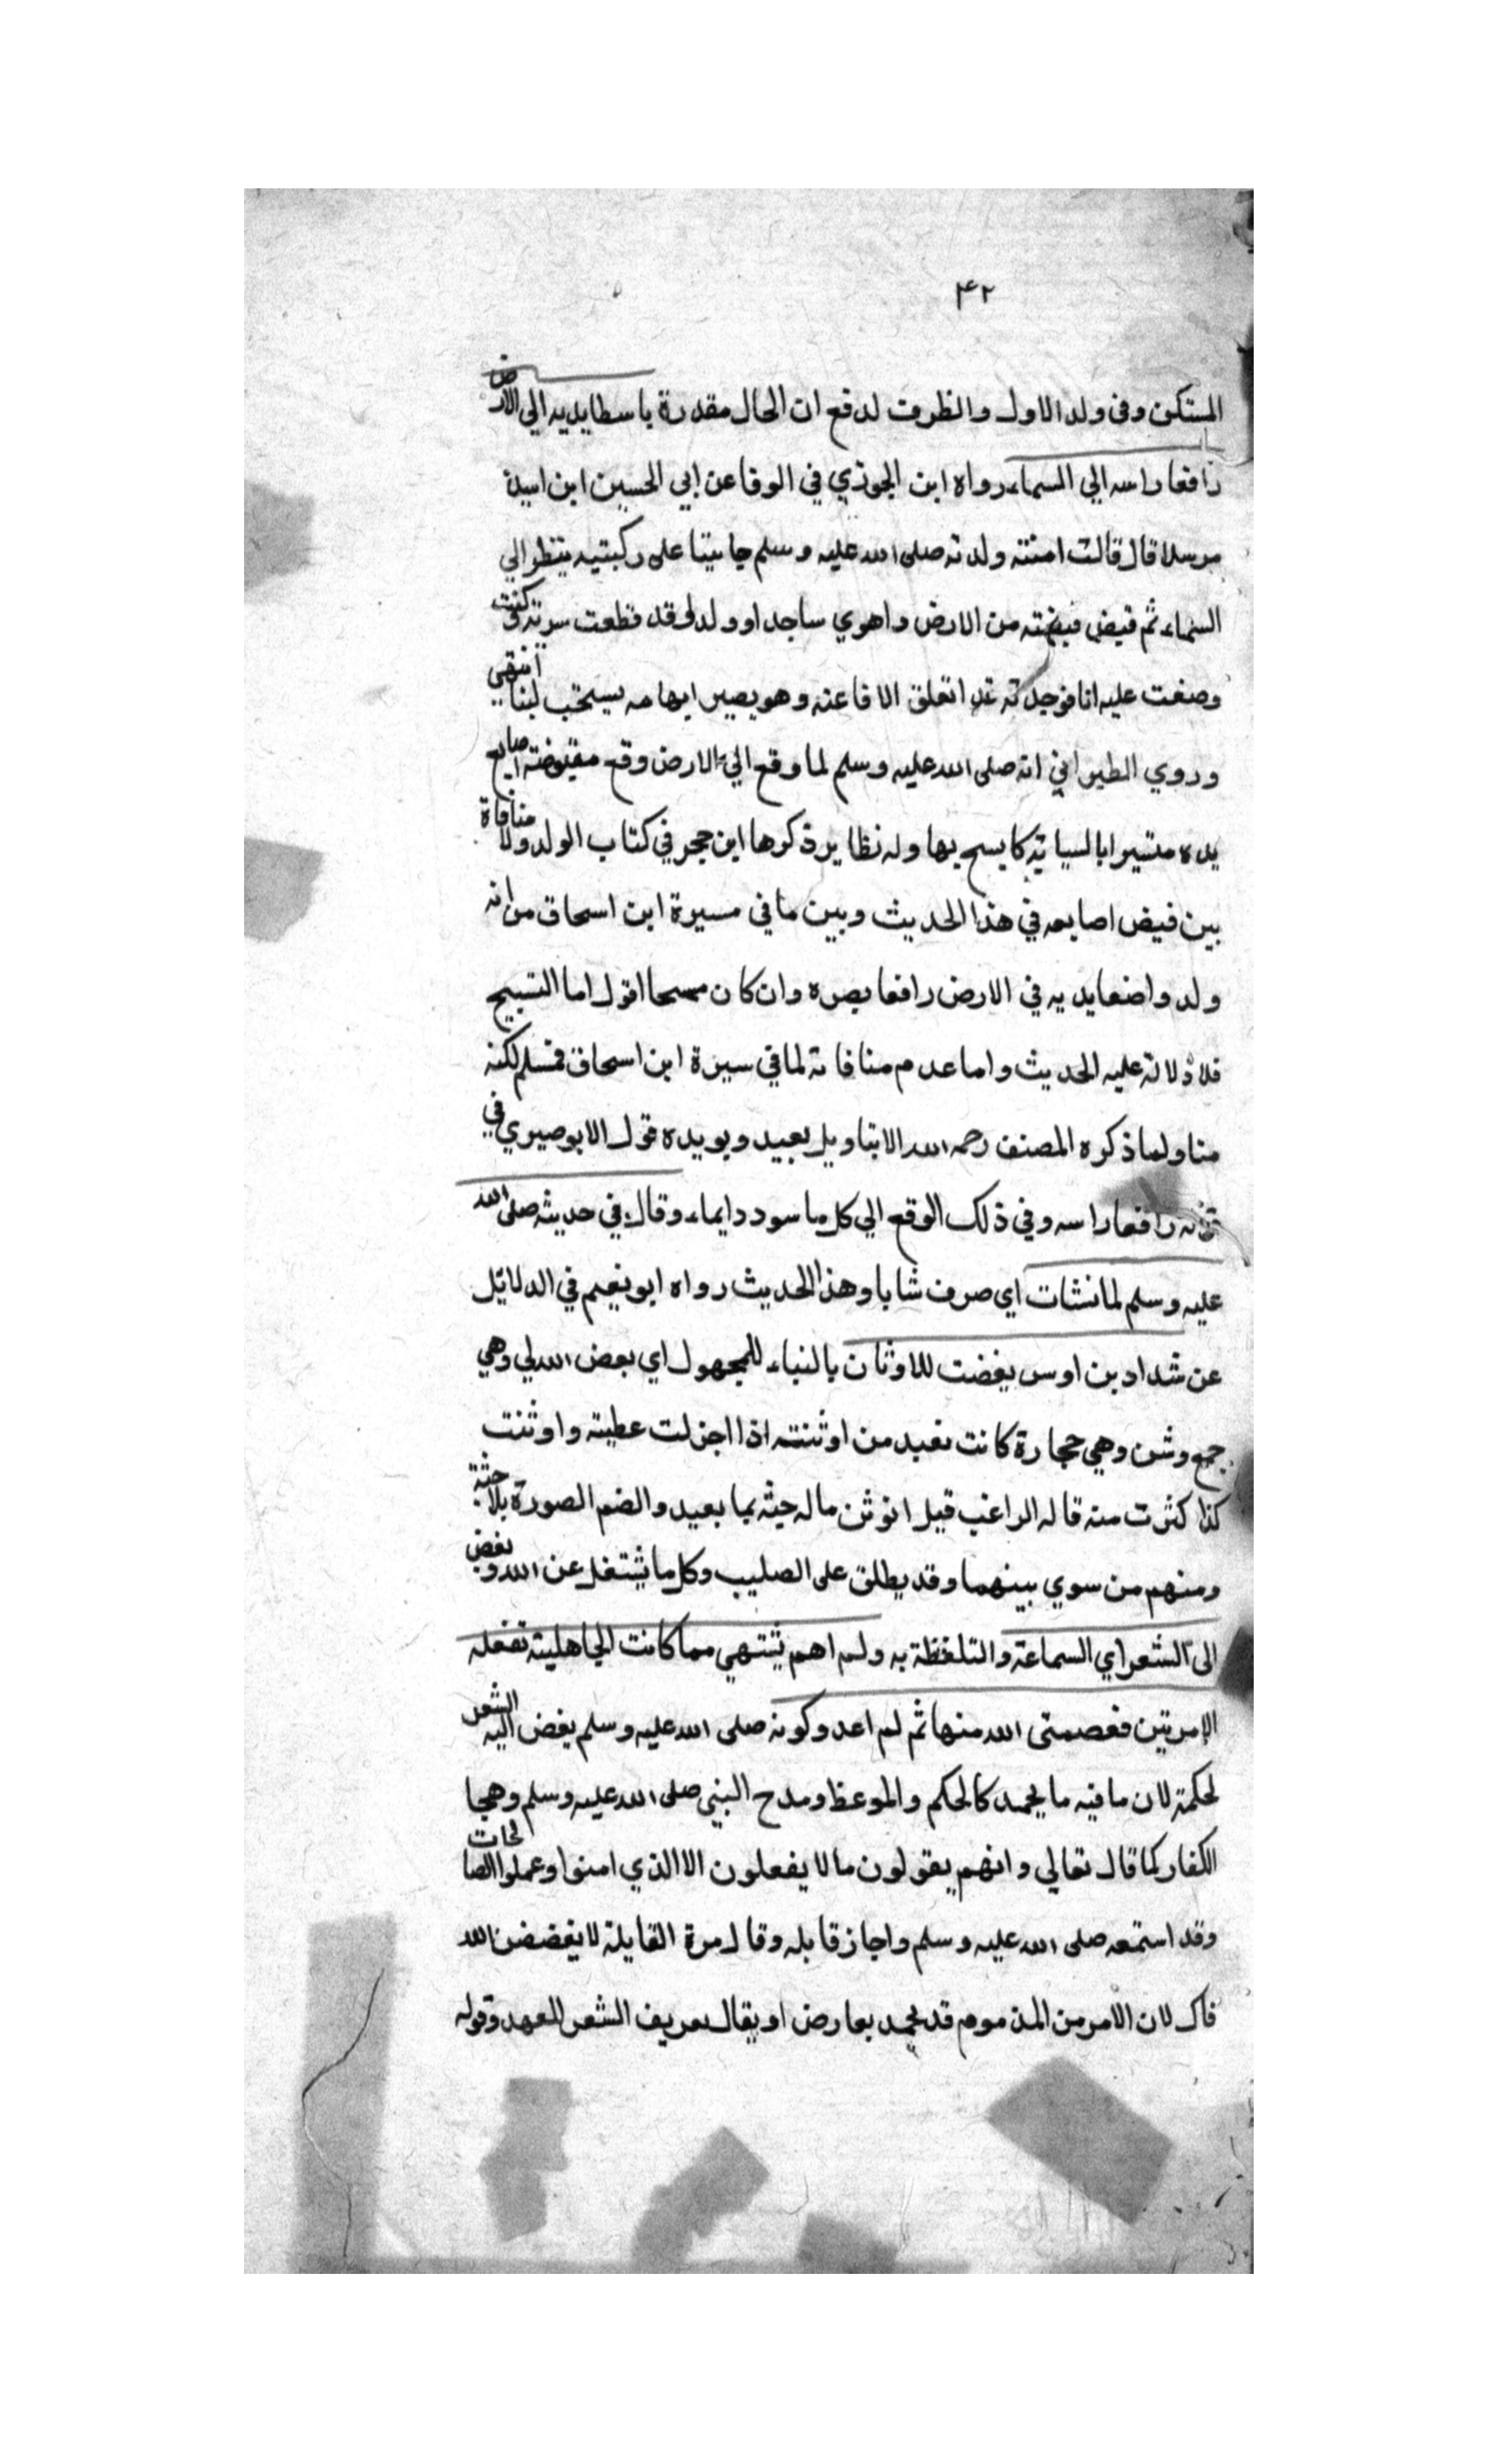 ٤٢
المستكن وفى ولد الاول والظرف لدفع ان الحال مقدرة باسطا يديه الي الارض
رافعا راسه الي السماء رواه ابن الجوزي في الوفا عن ابي الحسين ابن
مرسلا قال قالت امنته ولدته صلى الله عليه وسلم جاثيا على ركبتيه ينظر الي
السماء ثم قبض قبضته من الارض واهوي ساجدا وولد وقد قطعت سرته وكنت
وضعت عليه انا فوجدته قد انفلق الانا عنه وهو يصير ابهامه يسخب لبنا انتهى
وروي الطبراني انه صلى الله عليه وسلم لما وقع الي الارض وقع مقبوضته اصابع
يده مشيرا بالسبابة كا يسبح بها وله نظاير ذكرها ابن حجر في كتاب الولد ولا منافاة
بين قبض اصابعه في هذا الحديث وبين ما في مسيرة ابن اسحاق من انه
ولد واضعا يديه في الارض رافعا بصره وان كان مسبحا اقول اما التسبيح
فلا دلالة عليه الحديث واما عدم منافاته لما في سيرة ابن اسحاق فمسلم لكنه
مناولما ذكره المصنف رحمه الله الا بتاويل بعيد ويويده قول الابوصيري في
رافعا راسه وفي ذلك الوقع الي كل ما سودد ايماء وقال في حديثه صلى الله
عليه وسلم لما نشات اي صرف شابا وهذا الحديث رواه ابو نعيم في الدلائل
عن شداد بن اوس بغضت للاوثان بالنباء للمجهول اي بعض الله لي وهي
جمع وشن وهي حجارة كانت تعبد من اوثنته اذا اجزلت عطيته واوثنت
كذا كثرت منه قاله الراغب قيل انوثن ماله جثه بما بعيد والضم الصورة بلا جثة
ومنهم من سوي بينهما وقد يطلق على الصليب وكل ما يشتغل عن الله وبغض
الى الشعر اي السماعة والتلفظة به ولم اهم ينتهي مما كانت الجاهلية تفعله
الامرتين فعصمتى الله منها ثم لم اعد وكونه صلى الله عليه وسلم بغض اليه الشعر
لحكمة لان ما فيه ما يحمد كالحكم والموعظ ومدح النبي صلى الله عليه وسلم وهجا
الكفار كما قال تعالي وانهم يقولون ما لا يفعلون الا الذي امنوا وعملوا الصالحات
وقد استمعه صلى الله عليه وسلم واجاز قابله وقال مرة القايلة لا يغضضن الله
فاك لان الامر من المذموم قد يحمد بعارض او يقال تعريف الشعر للعهد وقوله